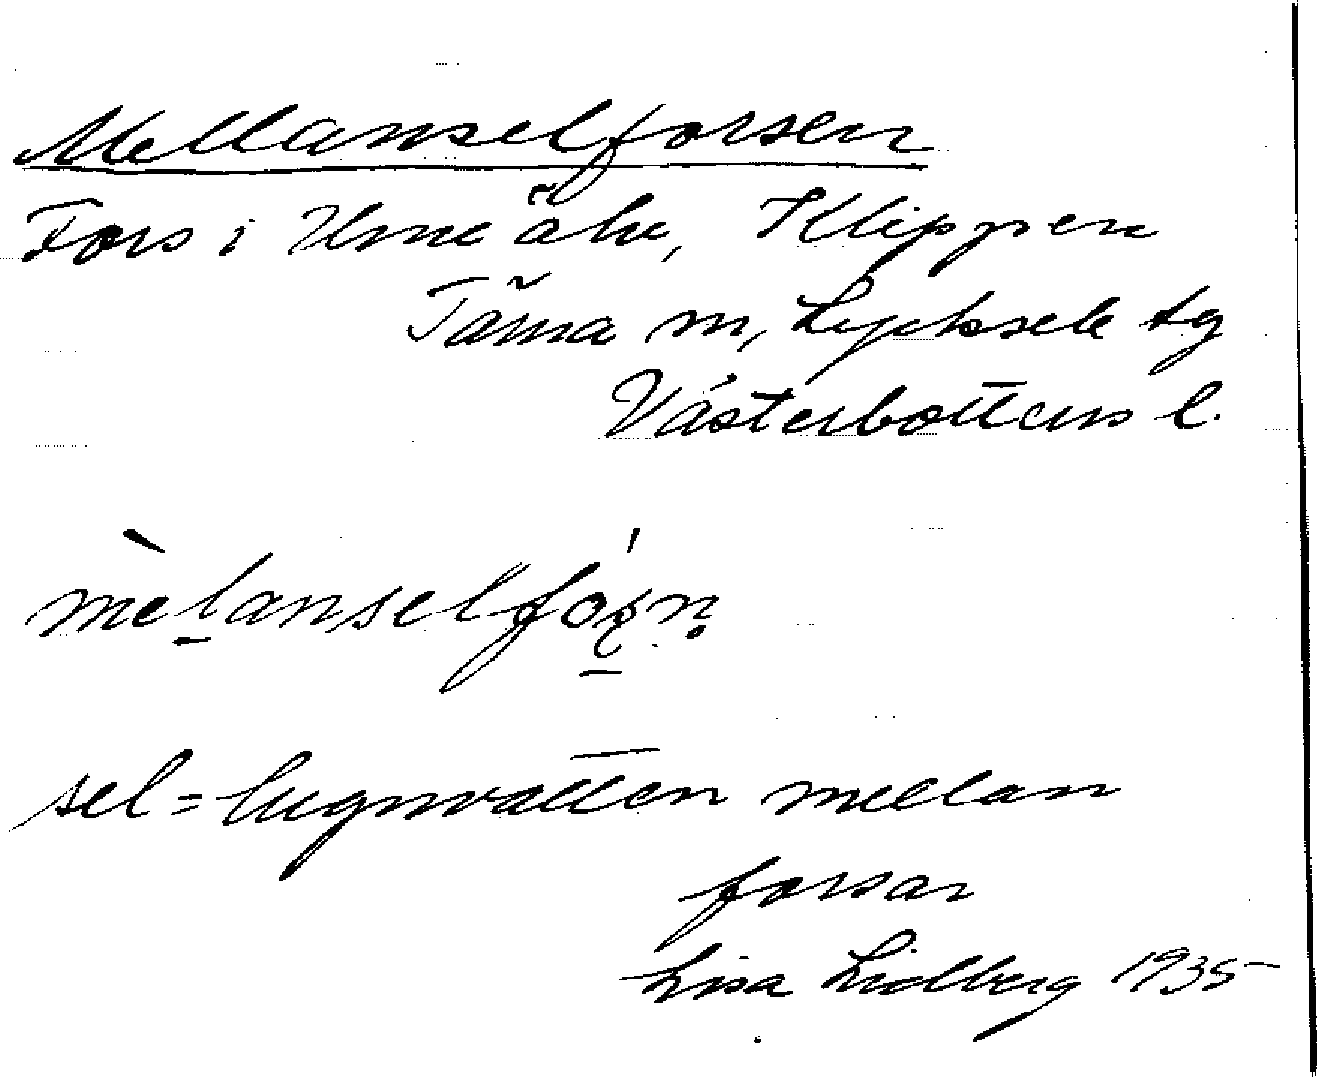 Mellanselforsen
Fors i Ume älv, Klippen
Tärna m, Lycksele tg
Västerbottens l.
mèlanselfóṣṇ
sel = lugnvatten mellan
forsar
Lisa Lidberg 1935